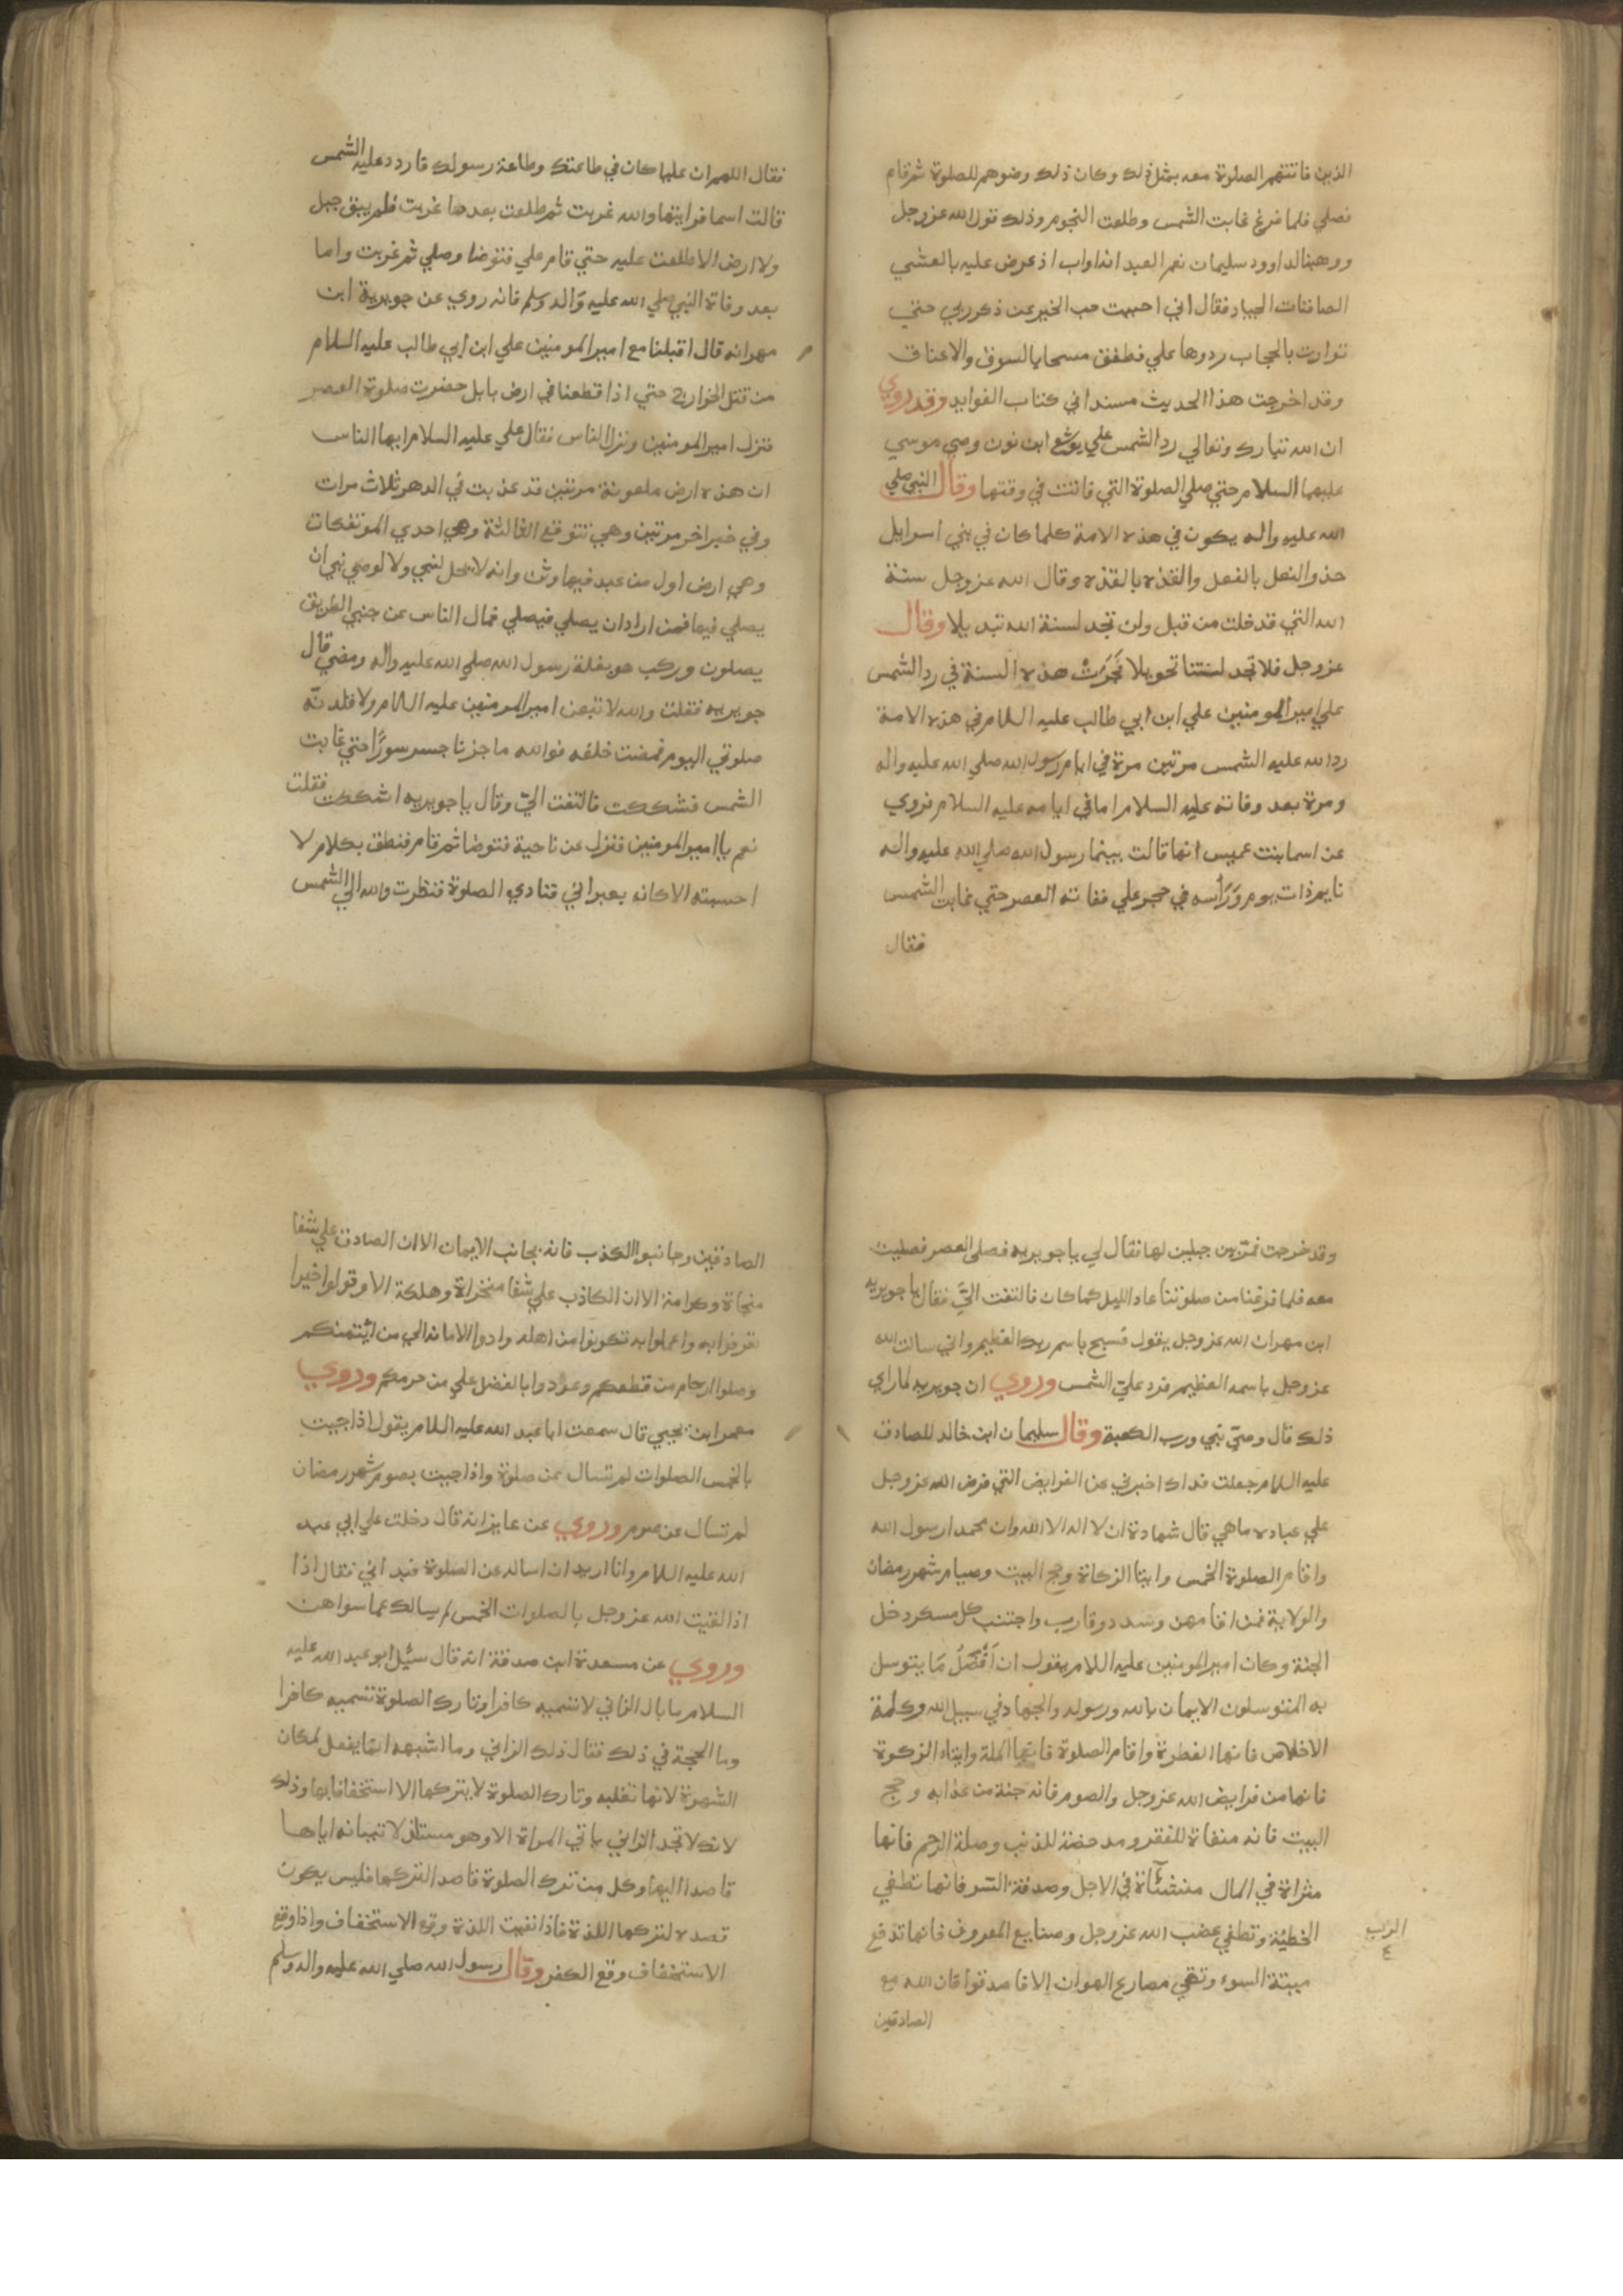 الذين فاتتهم الصلوة معه بمثل ذلك وكان ذلك وضوهم للصلوة ثم قام
فصلي فلما فرغ غابت الشمس وطلعت النجوم وذلك قول الله عز وجل
ووهبنا لداوود سليمان نعم العبد انه اواب اذ عرض عليه بالعشي
الصافنات الجياد فقال اني احببت حب الخير عن ذكر ربي حتي
توارت بالحجاب ردوها علي فطفق مسحا بالسوق والاعناق
وقد اخرجت هذا الحديث مسندا في كتاب الفوايد وقد روي
ان الله تبارك وتعالي رد الشمس علي يوشع ابن نون وصي موسي
عليهما السلام حتي صلي الصلوة التي فاتت في وقتها وقال النبي صلي
الله عليه واله يكون في هذه الامة كلما كان في بني اسرايل
حذو النعل بالنعل والقذه بالقذه وقال الله عز وجل سنة
الله التي قد خلت من قبل ولن تجد لسنة الله تبديلا وقال
عز وجل فلا تجد لسنتنا تحويلا فجرت هذه السنة في رد الشمس
علي امير المومنين علي ابن ابي طالب عليه السلام في هذه الامة
رد الله عليه الشمس مرتين مرة في ايام رسول الله صلي الله عليه واله
ومرة بعد وفاته عليه السلام اما في ايامه عليه السلام فروي
عن اسما بنت عميس انها قالت بينما رسول الله صلي الله عليه واله
نايم ذات يوم وراسه في حجر علي ففاته العصر حتي غابت الشمس
فقال
فقال اللهم ان عليا كان في طاعتك وطاعة رسولك فاردد عليه الشمس
قالت اسما فرايتها والله غربت ثم طلعت بعدما غربت فلم يبق جبل
ولا ارض الا طلعت عليه حتي قام علي فتوضا وصلي ثم غربت واما
بعد وفاة النبي صلي الله عليه واله وسلم فانه روي عن جويرية ابن
مهر انه قال اقبلنا مع امير المومنين علي ابن ابي طالب عليه السلام
من قتل الخوارج حتي اذا قطعنا في ارض بابل حضرت صلوة العصر
فنزل امير المومنين ونزل الناس فقال علي عليه السلام ايها الناس
ان هذه ارض ملعونة مرتين قد عذبت في الدهر ثلاث مرات
وفي خبر اخر مرتين وهي تتوقع الثالثة وهي احدي الموتفكات
وهي ارض اول من عبد فيها وثن وانه لا يحل لنبي ولا لوصي نبي ان
يصلي فيها فمن اراد ان يصلي فيصلي فمال الناس عن جنبي الطريق
يصلون وركب هو بغلة رسول الله صلي الله عليه واله ومضي قال
جويريه فقلت والله لا تبعن امير المومنين عليه السلام ولاقلدنه
صلوتي اليوم فمضت خلفه فوالله ما جزنا جسر سورا حتي غابت
الشمس فشككت فالتفت الي وقال يا جويريه اشككت فقلت
نعم يا امير المومنين فنزل عن ناحية فتوضا ثم قام فنطق بكلام لا
احسبته الا كانه بعبراني فنادي الصلوة فنظرت والله الي الشمس
وقد خرجت من بين جبلين لها فقال لي يا جويريه فصلي العصر فصليت
معه فلما فرغنا من صلوتنا عاد الليل كما كان فالتفت الي فقال يا جويريه
ابن مهر ان الله عز وجل يقول فسبح باسم ربك العظيم واني سالت الله
عز وجل باسمه العظيم فرد علي الشمس وروي ان جويريه لما راي
ذلك قال وصي نبي ورب الكعبة وقال سليمان ابن خالد للصادق
عليه السلام جعلت فداك اخبرني عن الفرايض التي فرض الله عز وجل
علي عباده ما هي قال شهادة ان لا اله الا الله وان محمدا رسول الله
واقام الصلوة الخمس وايتا الزكاة وحج البيت وصيام شهر رمضان
والولاية فمن اقامهن وسدد وقارب واجتنب كل مسكر دخل
الجنة وكان امير المومنين عليه السلام يقول ان افضل ما يتوسل
به المتوسلون الايمان بالله ورسوله والجهاد في سبيل الله وكلمة
الاخلاص فانها الفطرة واقام الصلوة فانها الملة وايتاء الزكوة
فانها من فرايض الله عز وجل والصوم فانه جنة من عذابه وحج
البيت فانه منفاة للفقر ومدحضة للذنب وصلة الرحم فانها
مثراة في المال منشئاة في الاجل وصدقة السر فانها تطفي
الخطيئة وتطفي غضب الله عز وجل وصنايع المعروف فانها تدفع
الرب
٤
ميتة السوء وتقي مصارع الهوان الا فاصدقوا فان الله مع
الصادقين
الصادقين وجانبوا الكذب فانه يجانب الايمان الا ان الصادق علي شفا
منجاة وكرامة الا ان الكاذب علي شفا مخزاة وهلكة الا وقولوا خيرا
تعرفوا به واعملوا به تكونوا من اهله وادوا الامانة الي من ائتمنكم
وصلوا ارحام من قطعكم وعودوا بالفضل علي من حرمكم وروي
معمر ابن يحيي قال سمعت ابا عبد الله عليه السلام يقول اذا جيت
بالخمس الصلوات لم تسال عن صلوة واذا جيت بصوم شهر رمضان
لم تسال عن صوم وروي عن عايز انه قال دخلت علي ابي عبد
الله عليه السلام وانا اريد ان اساله عن الصلوة فبداني فقال اذا
اذا لقيت الله عز وجل بالصلوات الخمس لم يسالك عما سواهن
وروي عن مسعدة ابن صدقة انه قال سئل ابو عبد الله عليه
السلام ما بال الزاني لا تسميه كافرا وتارك الصلوة تسميه كافرا
وما الحجة في ذلك فقال ذلك الزاني وما اشبهه انما يفعل لمكان
الشهوة لانها تغلبه وتارك الصلوة لا يتركها الا استخفافا بها وذلك
لانك لا تجد الزاني ياتي المراة الا وهو مستلذ لاتيانه اياها
قاصدا اليها وكل من ترك الصلوة قاصدا لتركها فليس يكون
قصده لتركها اللذة فاذا نفيت اللذة وقع الاستخفاف واذا وقع
الاستخفاف وقع الكفر وقال رسول الله صلي الله عليه واله وسلم